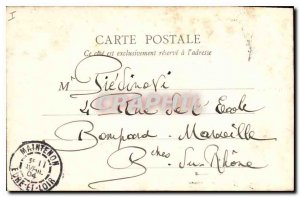 I
CARTE POSTALE
Ce côté est exclusivement réservé à l'adresse
M Piédinovi
4 Rue de l'Ecole
Bompard Marseille
Bches du Rhône
MAINTENON
EURE-ET-LOIR